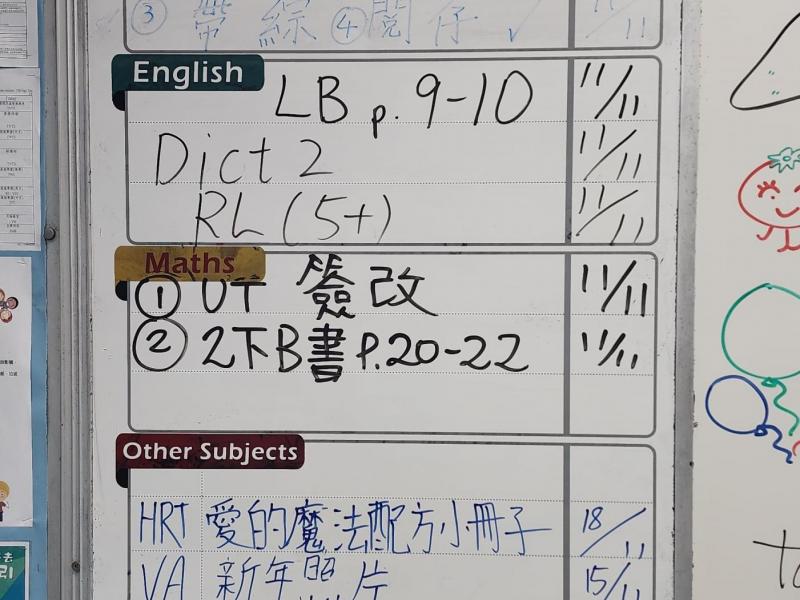 ③ 帶 綜 ④ 閱 仔 ✓ 11/11
English
LB p. 9-10 11/11
Dict 2 11/11
RL (5+) 11/11
Maths
① UT 簽改 11/11
② 2下B書 P.20-22 11/11
Other Subjects
HRT 愛的魔法配方小冊子 18/11
VA 新年照片 15/11